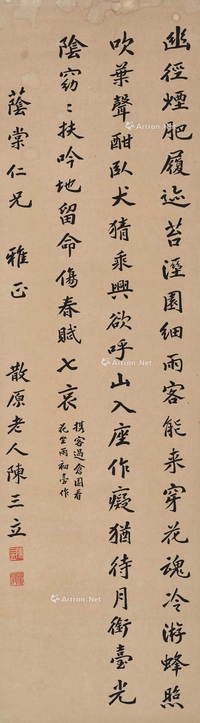 幽徑煙肥履迹苔溼園細雨客能来穿花魂冷游蜂照
吹葉聲酣臥犬猜乘興欲呼山入座作癡猶待月銜臺光
陰窈〻扶吟地留命傷春賦七哀
携客過倉園看
花坐雨初作
蔭棠仁兄 雅正 散原老人陳三立
Artron.Net